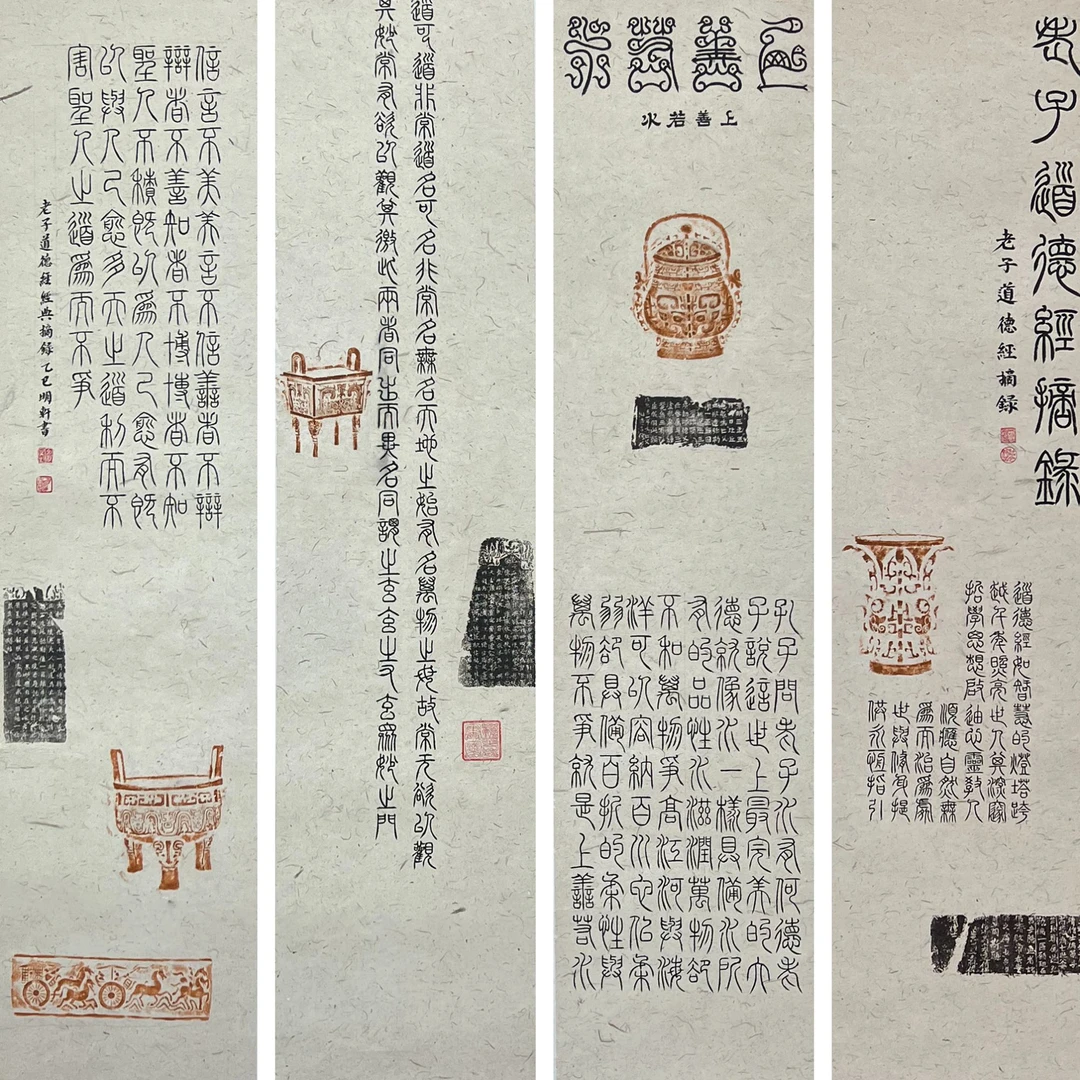 老子道德經摘錄
老子道德經摘錄
道德經如智慧的燈塔跨
越千年照亮世人其深邃
哲學思想啟迪心靈教人
順應自然無
爲而治爲處
世與修身提
供永恆指引
上善若水
上善若水
孔子問老子水有何德老
子說這世上最完美的大
德就像水一樣具備水所
有的品性水滋潤萬物卻
不和萬物爭高江河與海
洋可以容納百川也似柔
弱卻具備百折的柔性與
萬物不爭就是上善若水
道可道非常道名可名非常名無名天地之始有名萬物之母故常无欲以觀
其妙常有欲以觀其徼此兩者同出而異名同謂之玄玄之又玄眾妙之門
信言不美美言不信善者不辯
辯者不善知者不博博者不知
聖人不積既以爲人己愈有既
以與人己愈多天之道利而不
害聖人之道爲而不爭
老子道德經經典摘錄乙巳明軒書